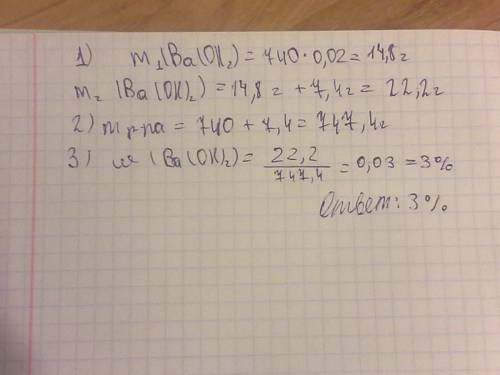 1) m₁(Ba(OH₂) = 740 · 0,02 = 14,8 г
m₂ (Ba(OH)₂) = 14,8 г + 7,4 г = 22,2 г
2) m р-ра = 740 + 7,4 = 747,4 г
3) ω (Ba(OH)₂) = 22,2 / 747,4 = 0,03 = 3%
Ответ: 3%